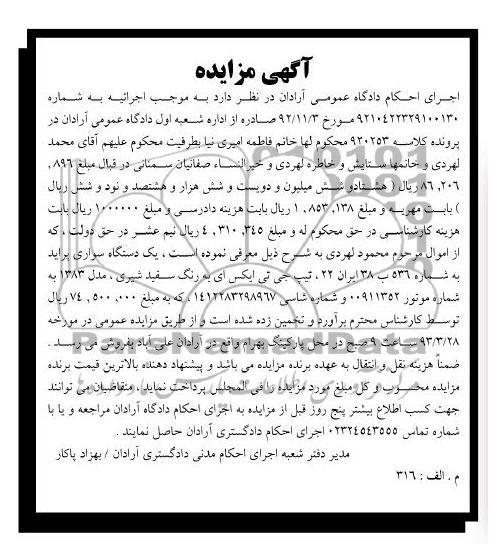 آگهی مزایده
اجرای احکام دادگاه عمومی آرادان در نظر دارد به موجب اجرائیه به شماره
۹۲۱۰۴۲۲۳۲۹۱۰۰۱۳۰ مورخ ۹۲/۱۱/۳ صادره از اداره شعبه اول دادگاه عمومی آرادان در
پرونده کلاسه ۹۲۰۲۵۳ محکوم لها خانم فاطمه امیری نیا بطرفیت محکوم علیهم آقای محمد
لهردی و خانمها ستایش و خاطره لهردی و خیرالنساء صفائیان سمنانی در قبال مبلغ ۸۹۶ ,
۲۰۶, ۸۶ ریال ( هشتادو شش میلیون و دویست و شش هزار و هشتصد و نود و شش ریال
) بابت مهریه و مبلغ ۱۳۸, ۸۵۳ , ۱ ریال بابت هزینه دادرسی و مبلغ ۱۰۰۰۰۰۰ ریال بابت
هزینه کارشناسی در حق محکوم له و مبلغ ۳۴۵, ۳۱۰ , ۴ ریال نیم عشر در حق دولت ، که
از اموال مرحوم محمود لهردی به شرح ذیل معرفی نموده است ، یک دستگاه سواری پراید
به شماره ۵۳۶ ب ۳۸ ایران ۲۲ ، تیپ جی تی ایکس ای به رنگ سفید شیری ، مدل ۱۳۸۳ به
شماره موتور ۰۰۹۱۱۳۵۲ و شماره شاسی ۱۴۱۲۲۸۳۲۹۸۹۶۷ ، که به مبلغ ۰۰۰, ۵۰۰ , ۷۴ ریال
توسط کارشناس محترم برآورد و تخمین زده شده است و از طریق مزایده عمومی در مورخه
۹۳/۳/۲۸ ساعت ۹ صبح در محل پارکینگ بهرام واقع در آرادان علی آباد بفروش می رسد .
ضمناً هزینه نقل و انتقال به عهده برنده مزایده می باشد و پیشنهاد دهنده بالاترین قیمت برنده
مزایده محسوب و کل مبلغ مورد مزایده را فی المجلس پرداخت نماید. متقاضیان می توانند
جهت کسب اطلاع بیشتر پنج روز قبل از مزایده به اجرای احکام دادگاه آرادان مراجعه و یا با
شماره تماس ۰۲۳۲۴۵۴۳۵۵۵ اجرای احکام دادگستری آرادان حاصل نمایند .
مدیر دفتر شعبه اجرای احکام مدنی دادگستری آرادان / بهزاد پاکار
م . الف : ۳۱۶